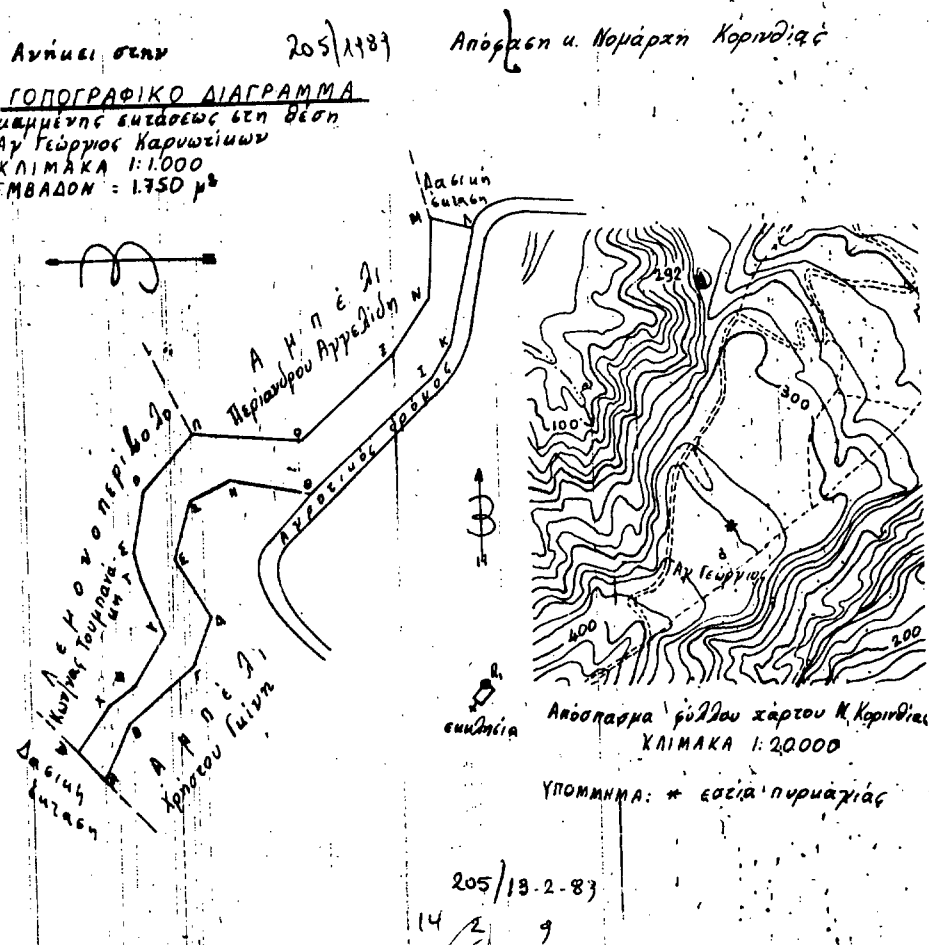 Ανήκει στην 205/1983 Απόφαση κ. Νομάρχη Κορινθίας
ΤΟΠΟΓΡΑΦΙΚΟ ΔΙΑΓΡΑΜΜΑ
καμμένης εκτάσεως στη θέση
Αγ Γεώργιος Καρυωτίκων
ΚΛΙΜΑΚΑ 1:1.000
ΕΜΒΑΔΟΝ = 1.750 μ²
Δασική
έκταση
Μ Λ
Αμπέλι
Περιάνδρου Αγγελίδη
Ν
Ξ
Ι Κ
Ο
Π
Θ
Η
Ζ
Ε
Δ
Γ
Β
Α
Ρ
Σ
Τ
Χ
Ψ
Αγροτικός δρόμος
Λεμονοπερίβολο
Κων/νας Τουμπανά-
κη
Αμπέλι
Χρήστου Γκίνη
Δασική
έκταση
292
300
100
Αγ Γεώργιος
400
200
εκκλησία
Απόσπασμα φύλλου χάρτου Ν. Κορινθίας
ΚΛΙΜΑΚΑ 1:20000
ΥΠΟΜΜΗΜΑ: * εστία πυρκαγιάς
205/13-2-83
14 2 9